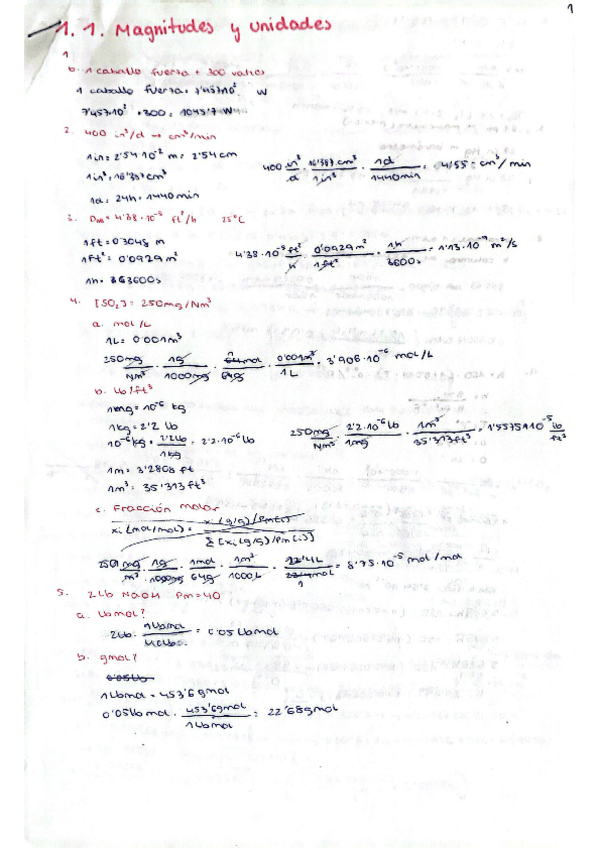 1
1. 1. Magnitudes y unidades
1
b. 1 caballo fuerza + 300 vatios
1 caballo fuerza = 7'457·10² W
7'457·10² + 300 = 1045'7 W
2. 400 in³/d → cm³/min
1 in = 2'54 10⁻² m = 2'54 cm
1 in³ = 16'387 cm³
1d = 24h = 1440 min
400 in³/d · 16'387 cm³/1 in³ · 1d/1440 min = 4'55 cm³/min
3. D = 4'38·10⁻⁵ ft²/h 25°C
1 ft = 0'3048 m
1 ft² = 0'0929 m²
1h = 3600s
4'38·10⁻⁵ ft²/h · 0'0929 m²/1 ft² · 1h/3600s = 1'13·10⁻⁹ m²/s
4. [SO₂] = 250 mg/Nm³
a. mol/L
1L = 0'001 m³
250 mg/Nm³ · 1g/1000 mg · 1 mol/64g · 0'001 m³/1 L = 3'906·10⁻⁶ mol/L
b. lb/ft³
1 mg = 10⁻⁶ kg
1 kg = 2'2 lb
10⁻⁶ kg · 2'2 lb/1 kg = 2'2·10⁻⁶ lb
1m = 3'2808 ft
1m³ = 35'313 ft³
250 mg/Nm³ · 2'2·10⁻⁶ lb/1 mg · 1m³/35'313 ft³ = 1'5575·10⁻⁵ lb/ft³
c. Fracción molar
xi (mol/mol) = xi (g/g) / Pm(i) / Σ [xi (g/g) / Pm (i)]
250 mg/m³ · 1g/1000 mg · 1 mol/64g · 1m³/1000 L · 22'4 L/1 mol = 8'75·10⁻⁵ mol/mol
5. 2 lb NaOH Pm = 40
a. lbmol?
2 lb · 1 lbmol/40 lb = 0'05 lbmol
b. gmol?
0'05 lb
1 lbmol = 453'6 gmol
0'05 lbmol · 453'6 gmol/1 lbmol = 22'68 gmol